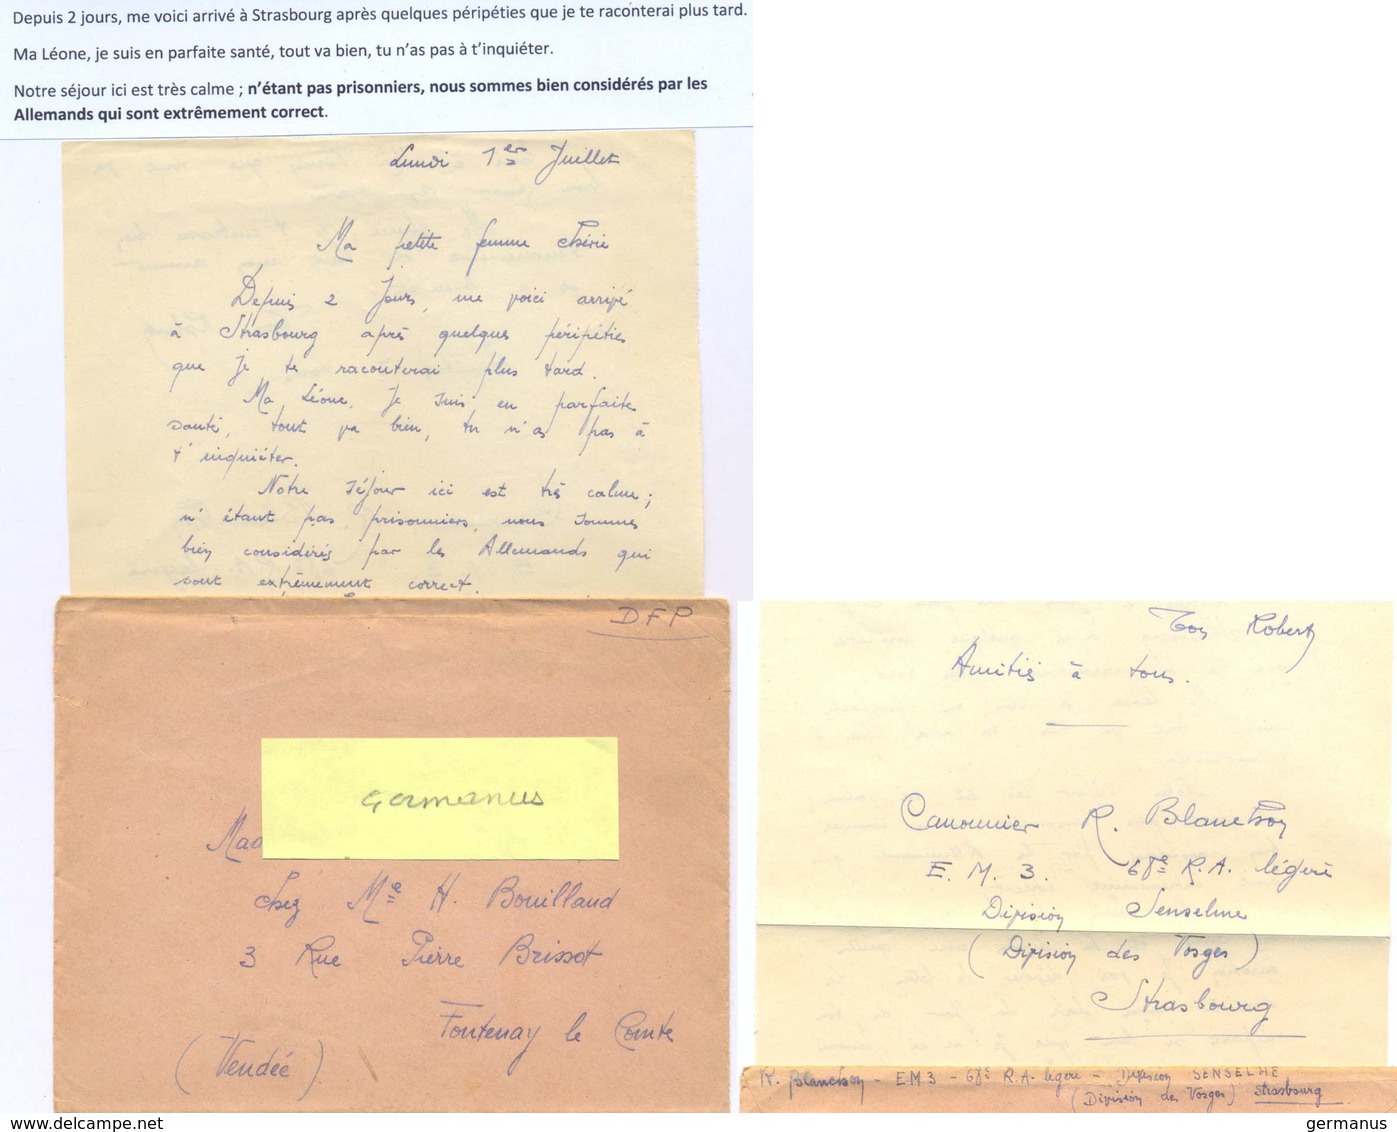 Depuis 2 jours, me voici arrivé à Strasbourg après quelques péripéties que je te raconterai plus tard.
Ma Léone, je suis en parfaite santé, tout va bien, tu n’as pas à t’inquiéter.
Notre séjour ici est très calme ; n’étant pas prisonniers, nous sommes bien considérés par les
Allemands qui sont extrêmement correct.
Lundi 1er Juillet
Ma petite femme chérie
Depuis 2 jours, me voici arrivé
à Strasbourg après quelques péripéties
que je te raconterai plus tard.
Ma Léone, je suis en parfaite
santé, tout va bien, tu n'as pas à
t'inquiéter.
Notre séjour ici est très calme ;
n'étant pas prisonniers, nous sommes
bien considérés par les Allemands qui
sont extrêmement correct.
DFP
germanus
Mad
chez Me H. Bouilland
3 Rue Pierre Brissot
Fontenay le Comte
(Vendée)
Ton Robert
Amitiés à tous.
Canonnier R. Blanchon
E. M. 3. 68e R.A. légère
Division Senselme
(Division des Vosges)
Strasbourg
R. Blanchon - EM3 - 68e R.A. légère - Division SENSELME
(Division des Vosges) Strasbourg
www.delcampe.net
germanus